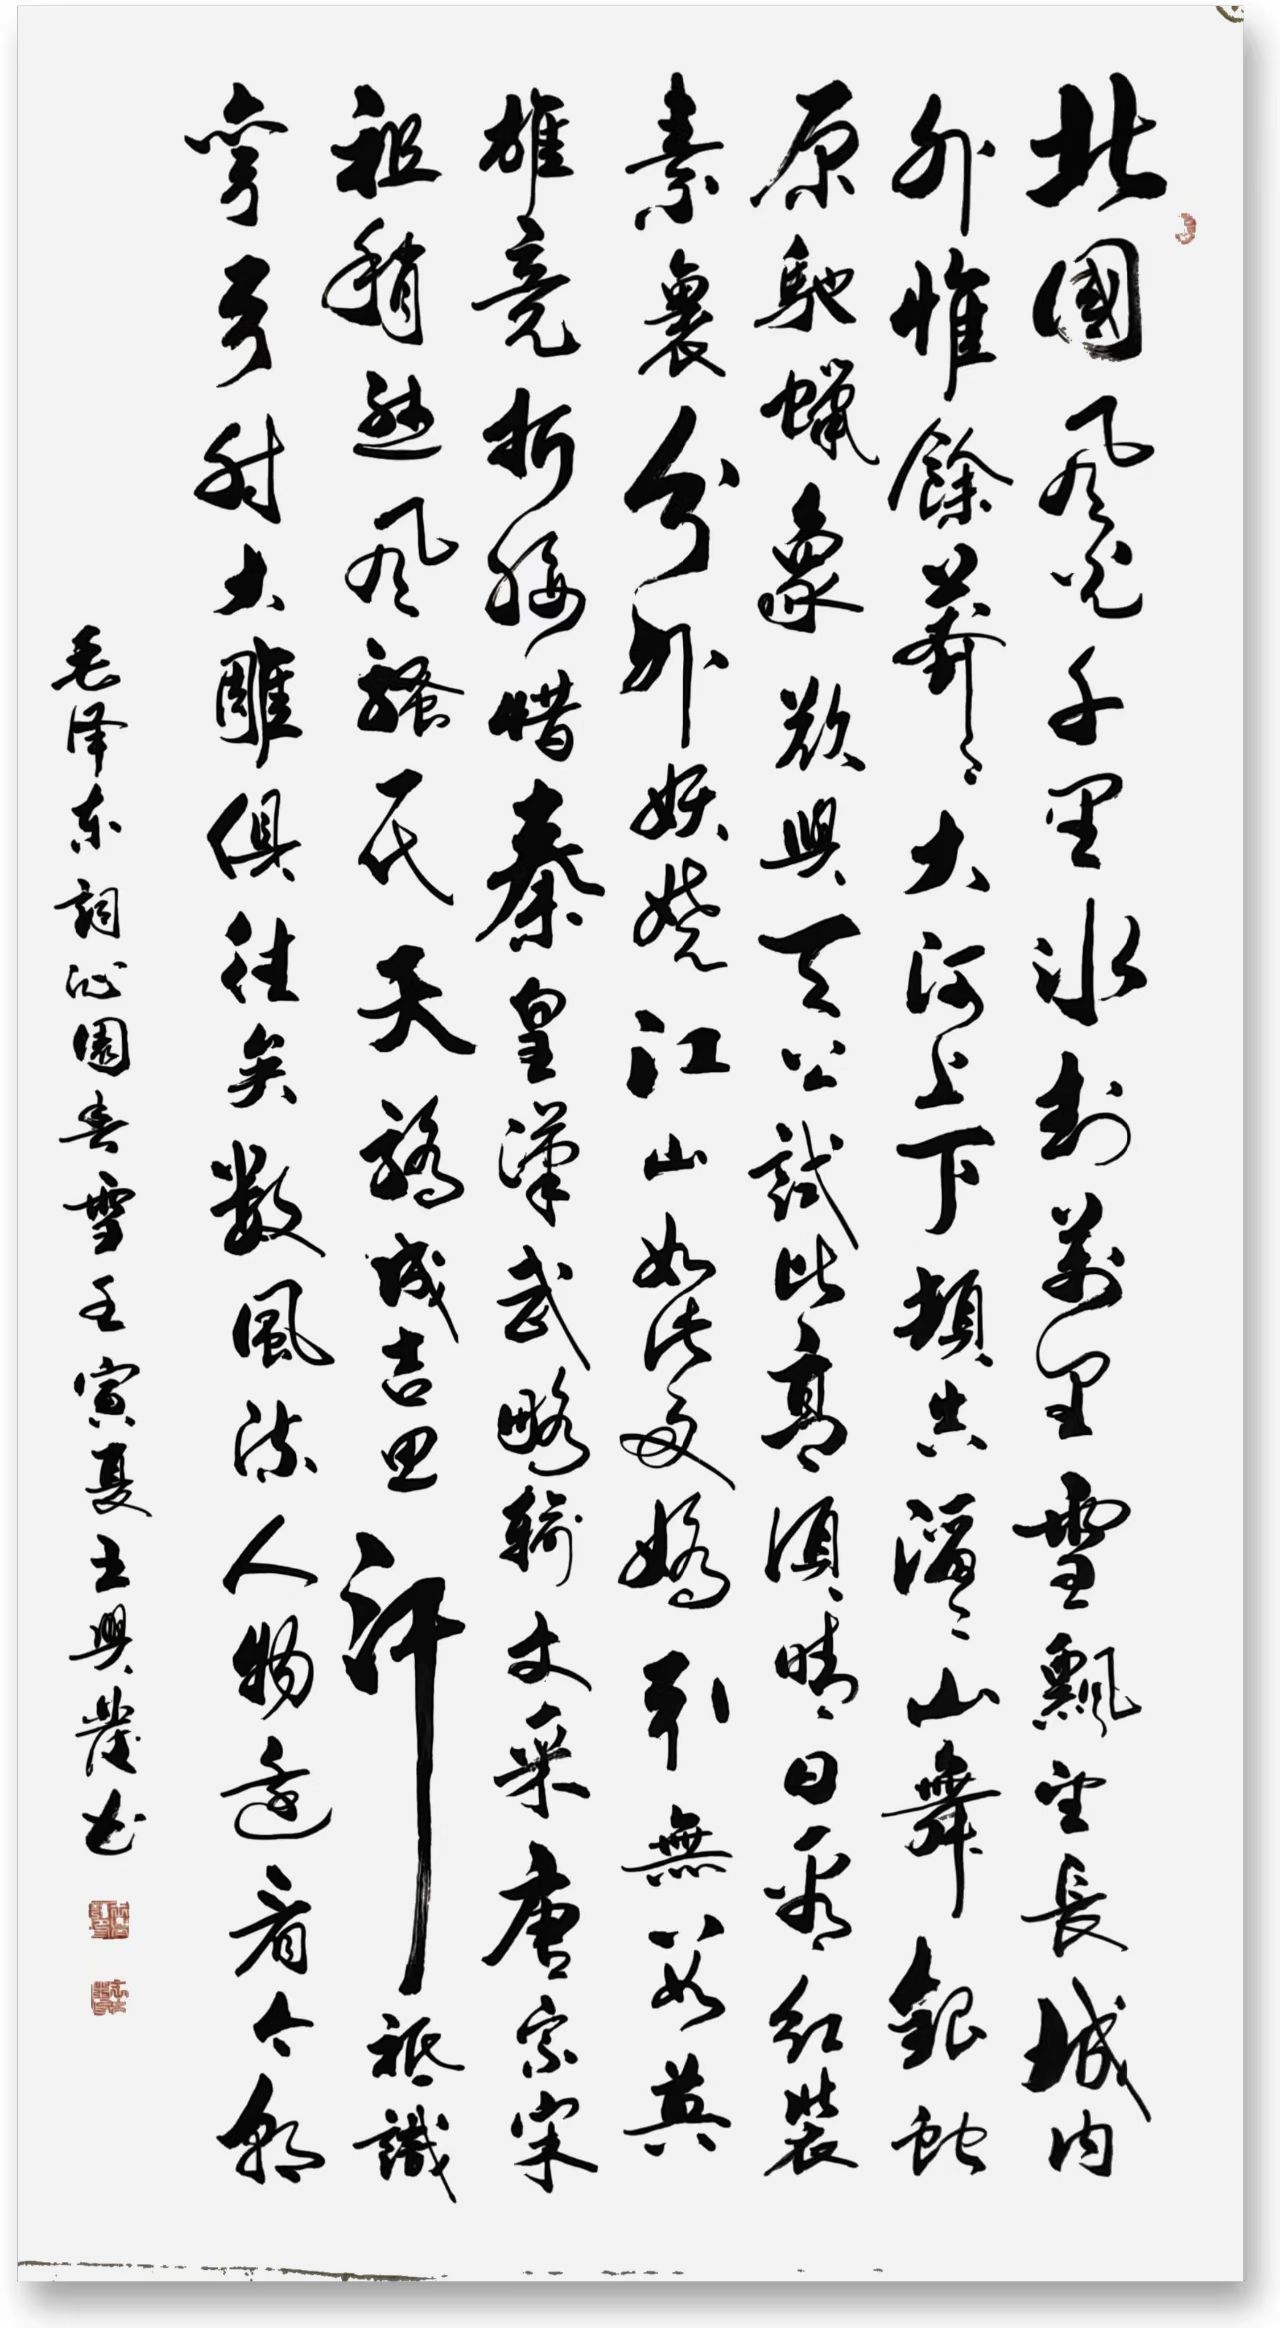 北國风光千里冰封萬里雪飄望長城内
外惟餘莽〻大河上下頓失滔〻山舞銀蛇
原馳蠟象欲與天公試比高須晴日看红裝
素裹分外妖娆江山如此多嬌引無数英
雄竞折腰惜秦皇漢武略輸文采唐宗宋
祖稍逊风騷一代天驕成吉思汗祗識
彎弓射大雕俱往矣数風流人物还看今朝
毛泽东詞沁園春雪壬寅夏王興发书